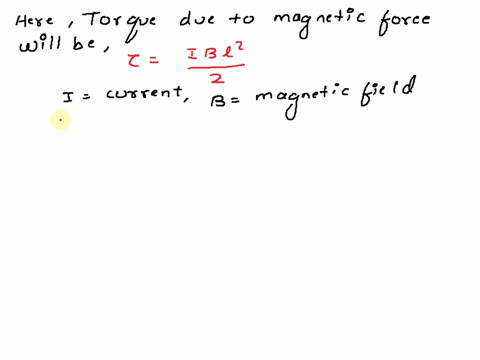 Here, Torque due to magnetic force
will be,
τ = IBl²/2
I = current, B = magnetic field